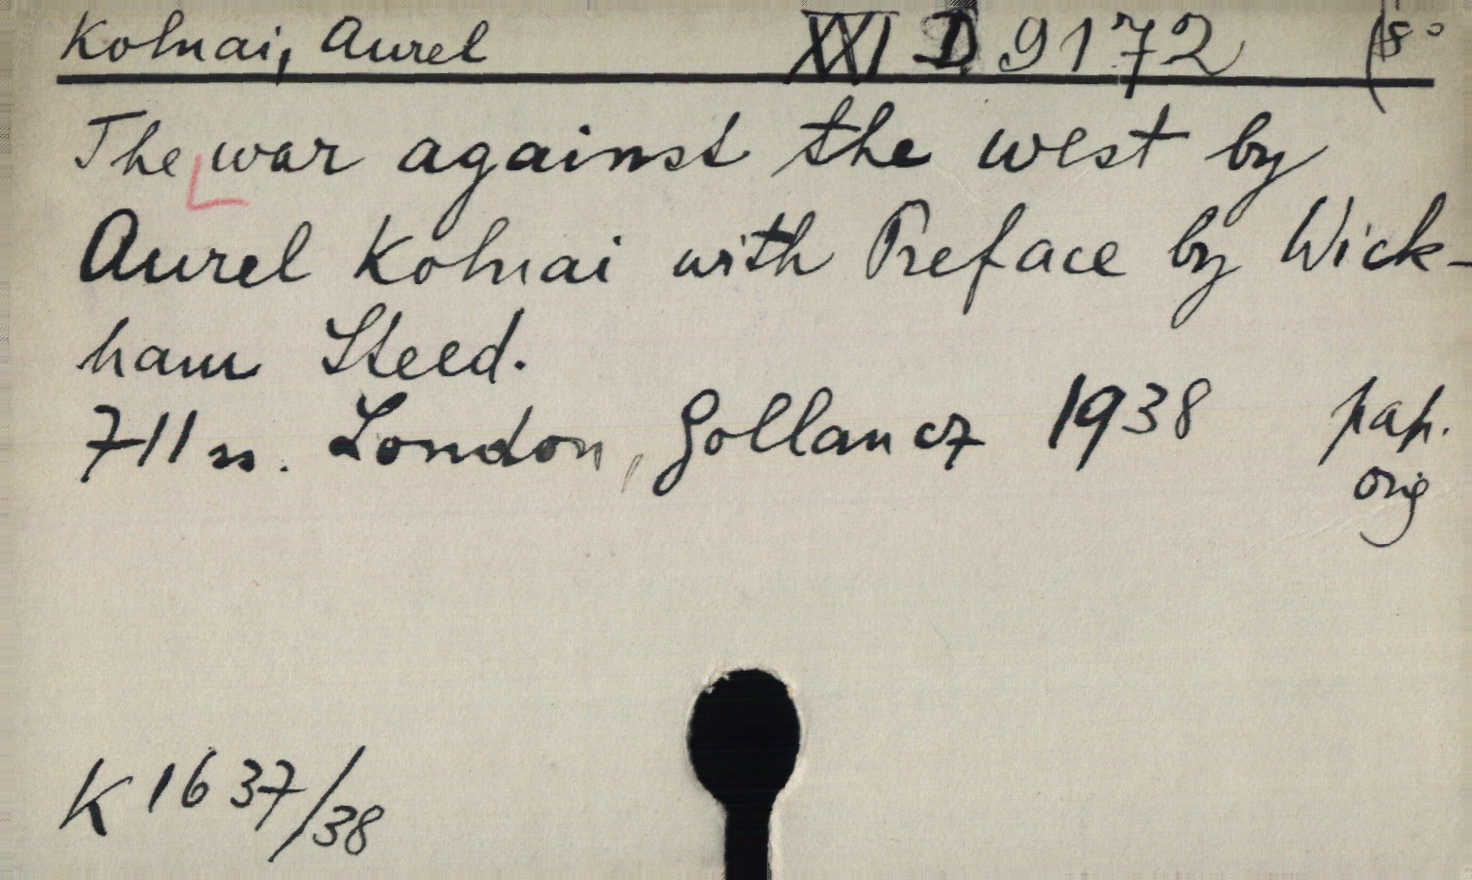 Kolnai, Aurel XXI D 9172 (8°
The war against the west by
Aurel Kolnai with Preface by Wick-
ham Steed.
711 ss. London, Gollancz 1938 pap.
orig
K 1637/38